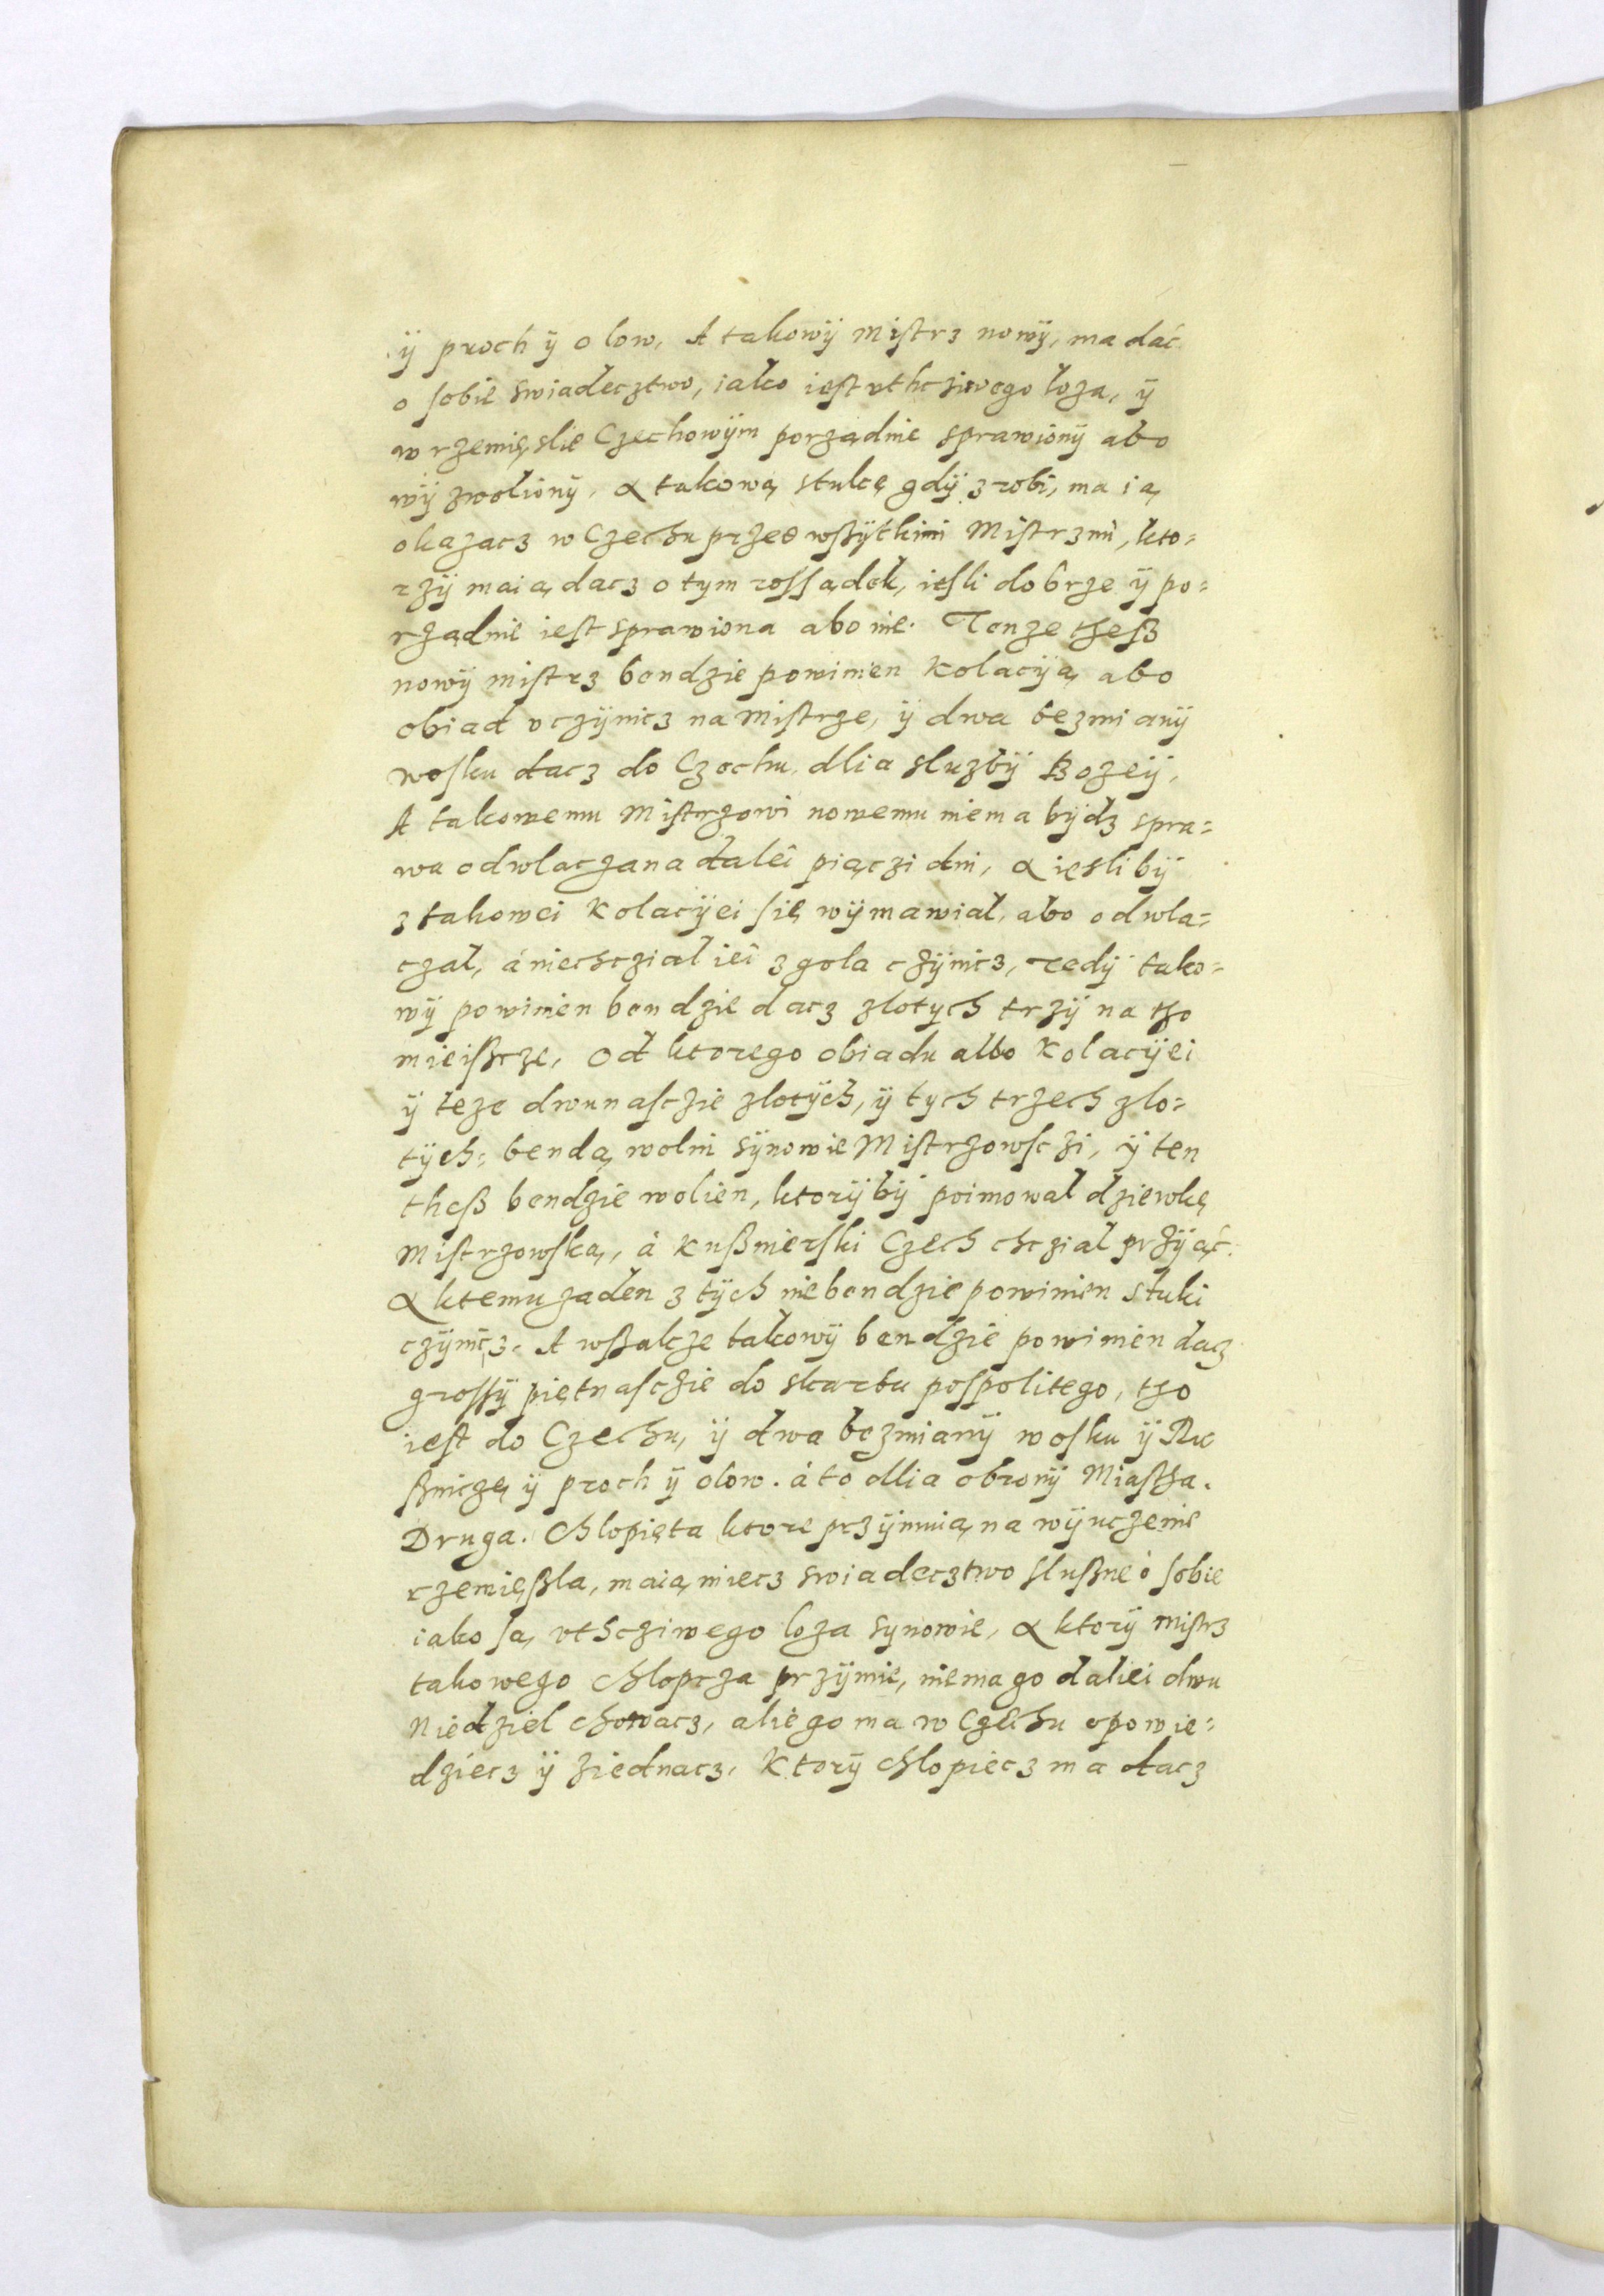 ÿ proch ÿ olow, A takowÿ Mistrz nowÿ, ma dać
o sobie swiadecztwo, iako iest vthcziwego loza, ÿ
w rzemięslie Czechowÿm porządnie sprawionÿ abo
wÿzwolionÿ, A takową stukę gdÿ zrobi, ma ią
okazacz w Czechu przed wßÿtkimi Mistrzmi, kto=
rzÿ maią dacz o tym rossądek, iesli dobrze ÿ po=
rządnie iest sprawiona abo nie. Tenze theß
nowÿ mistrz bendzie powinien Kolaciją abo
obiad vczÿnicz na Mistrze, ÿ dwa bezmianÿ
wosku dacz do Czechu dlia sluzbÿ Bozeÿ,
A takowemu Mistrzowi nowemu niema bÿdz spra=
wa odwlaczana dalei pięczi dni, A iesli bÿ
z takowei Kolacijei się wÿmawial, abo odwla=
czal, á niechczial iei zgola czÿnicz, Tedÿ tako=
wÿ powinien bendzie dacz zlotych trzÿ na tho
mieißcze, Od ktorego obiadu albo Kolacijei
ÿ teze dwunasczie zlotÿch, ÿ tych trzech zlo=
tÿch: bendą wolni sÿnowie Mistrzowsczi, ÿ ten
theß bendzie wolien, ktorÿ bÿ poimowal dziewkę
Mistrzowską, á Kußnierski Czech chczial przÿąć.
A ktemu zaden z tÿch nie bendzie powinien stuki
czÿnicz. A wßakze takowÿ bendzie powinien dacz
grossÿ piętnasczie do skarbu pospolitego, tho
iest do Czechu, ÿ dwa bezmianÿ wosku ÿ Ru
ßniczę ÿ proch ÿ olow. á to dlia obronÿ Miastha.
Druga. Chlopięta ktore przÿmuią na wÿuczenie
rzemięßla, maią miecz swiadecztwo slußne o sobie
iako są vthcziwego loza synowie, A ktorÿ Mistrz
takowego chlopcza przÿmie, niema go daliei dwu
Niedziel chowacz, alie go ma w Czechu opowie=
dziecz ÿ ziednacz. Ktorÿ chlopiecz ma dacz